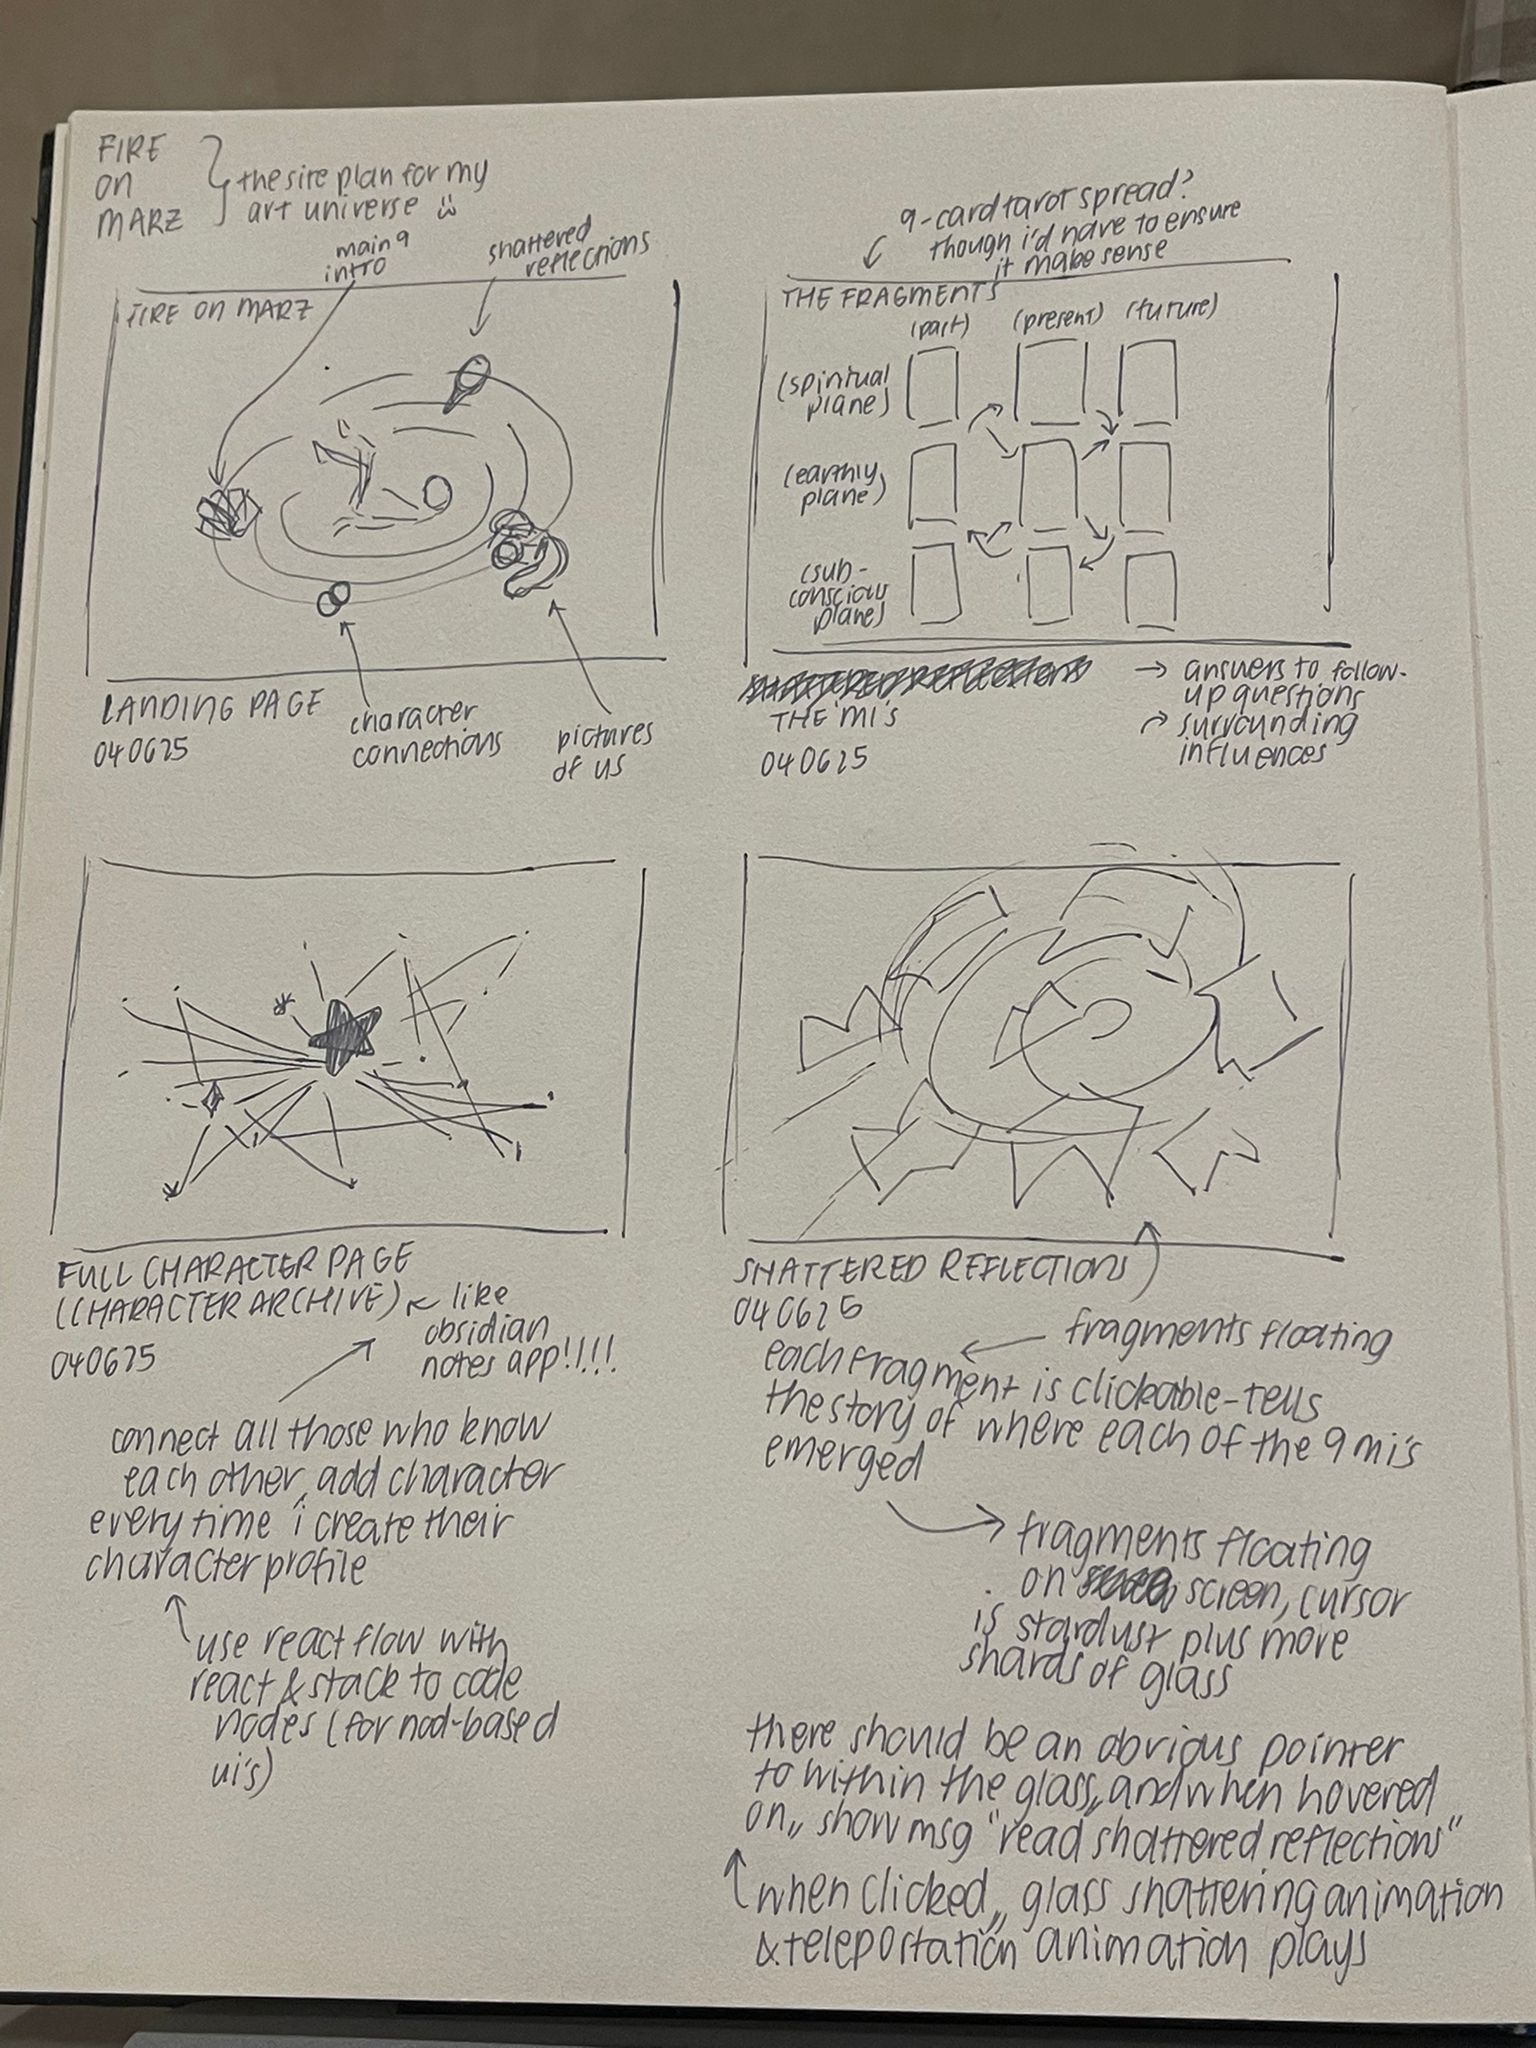 FIRE
ON
MARZ
the site plan for my
art universe
main 9
intro
shattered
reflections
FIRE ON MARZ
LANDING PAGE
040625
character
connections
pictures
of us
9-card tarot spread?
though i'd have to ensure
it make sense
THE FRAGMENTS
(past) (present) (future)
(spiritual
plane)
(earthly
plane)
(sub-
conscious
plane)
THE MI'S
040625
→ answers to follow-
up questions
→ surrounding
influences
FULL CHARACTER PAGE
(CHARACTER ARCHIVE)
040625
like
obsidian
notes app!!!!!
connect all those who know
each other, add character
every time i create their
character profile
use react flow with
react & stack to code
nodes (for nod-based
ui's)
SHATTERED REFLECTIONS
040625
fragments floating
each fragment is clickable - tells
the story of where each of the 9 mi's
emerged
fragments floating
on screen, cursor
is stardust plus more
shards of glass
there should be an obvious pointer
to within the glass,, and when hovered
on,, show msg "read shattered reflections"
when clicked,, glass shattering animation
& teleportation animation plays